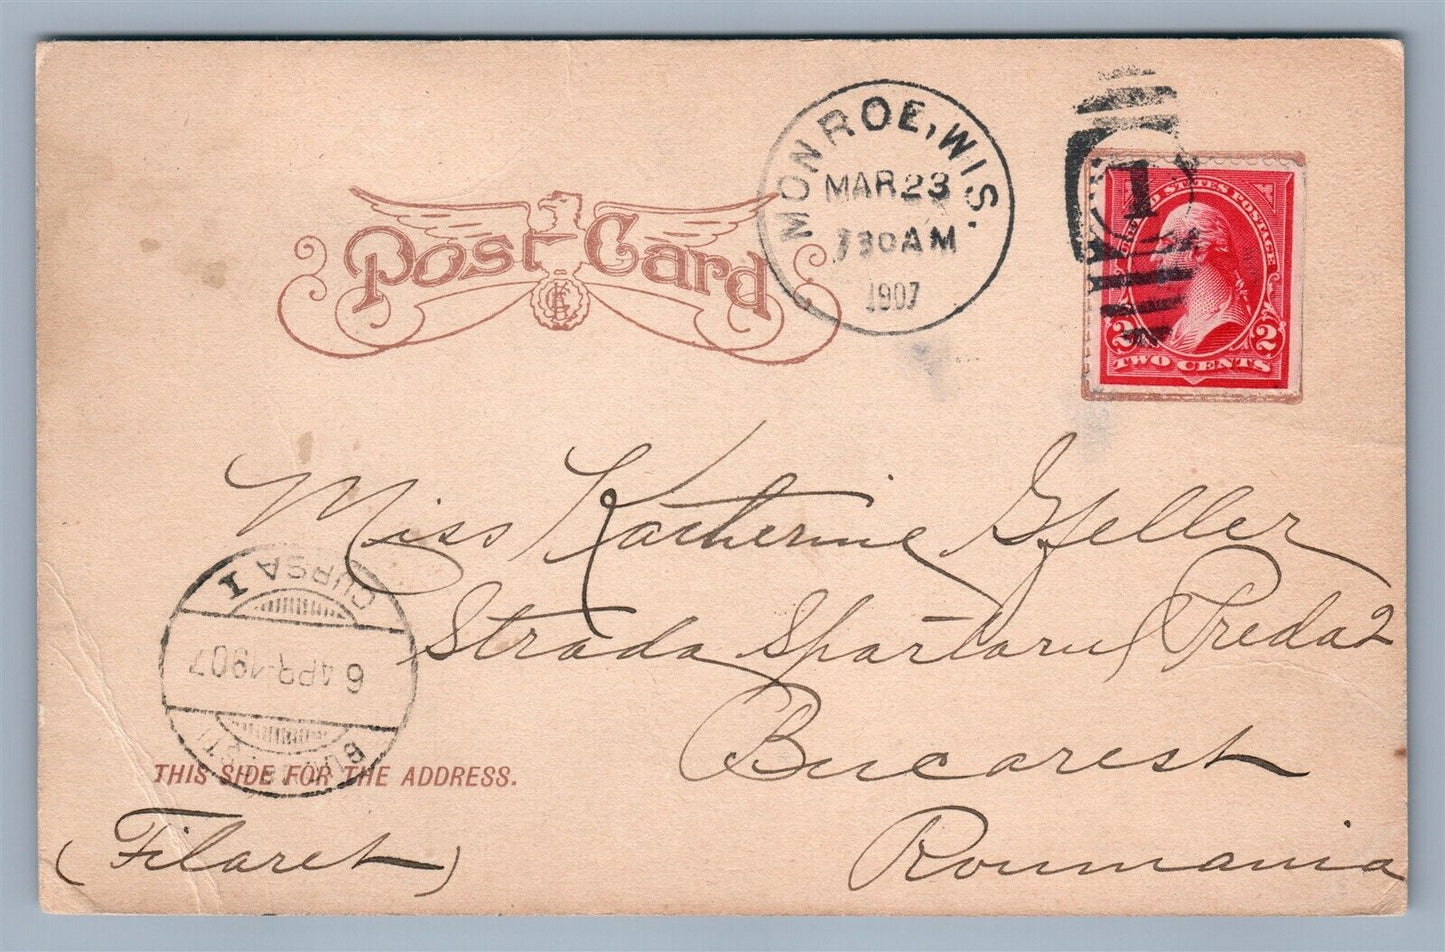 MONROE, WIS.
MAR 23
730AM
1907
Post Card
1
UNITED STATES POSTAGE
2 2
TWO CENTS
Miss Katherine Gfeller
Strada Spartarul Preda 2
Bucarest
Roumania
CURSA I
6 APR. 1907
THIS SIDE FOR THE ADDRESS.
(Filaret)